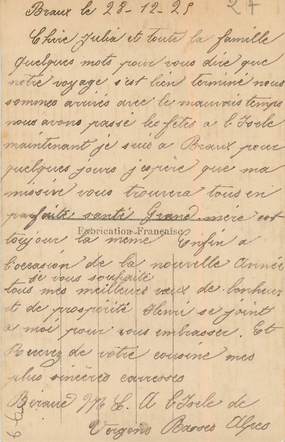 Braux le 28-12-25
27
Chère Julia et toute la famille
quelques mots pour vous dire que
notre voyage s'est bien terminé nous
sommes arrivés avec le mauvais temps
nous avons passé les fêtes a l'Isole
maintenant je suis a Braux pour
quelques jours j'espère que ma
missive vous trouvera tous en
parfaite santé Grand mère est
toujour la même Enfin a
Fabrication Française
l'occasion de la nouvelle Année
je vous souhaite
tous mes meilleurs vœux de bonheur
et de prospérité Henri se joint
a moi pour vous embrasser. Et
Recevez de votre cousine mes
plus sincères carresses
Beraud M L. A l'Isole de
Vergons Basses Alpes